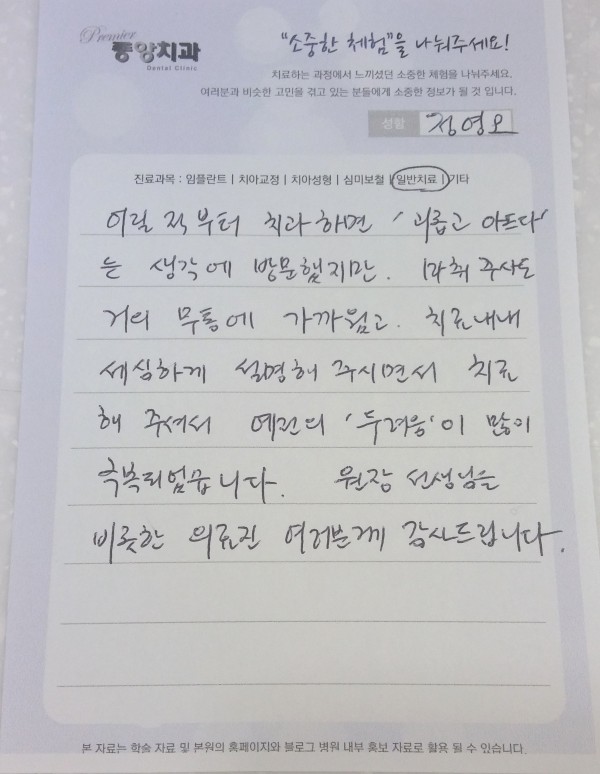 Premier
중앙치과
Dental Clinic
"소중한 체험"을 나눠주세요!
치료하는 과정에서 느끼셨던 소중한 체험을 나눠주세요.
여러분과 비슷한 고민을 겪고 있는 분들에게 소중한 정보가 될 것 입니다.
성함 정영모
진료과목 : 임플란트 | 치아교정 | 치아성형 | 심미보철 | 일반치료 | 기타
어릴 적부터 치과하면 '괴롭고 아프다'
는 생각에 방문했지만. 마취 주사도
거의 무통에 가까웠고. 치료내내
세심하게 설명해 주시면서 치료
해 주셔서 예전의 '두려움'이 많이
극복되었습니다. 원장 선생님을
비롯한 의료진 여러분께 감사드립니다.
본 자료는 학술 자료 및 본원의 홈페이지와 블로그 병원 내부 홍보 자료로 활용 될 수 있습니다.